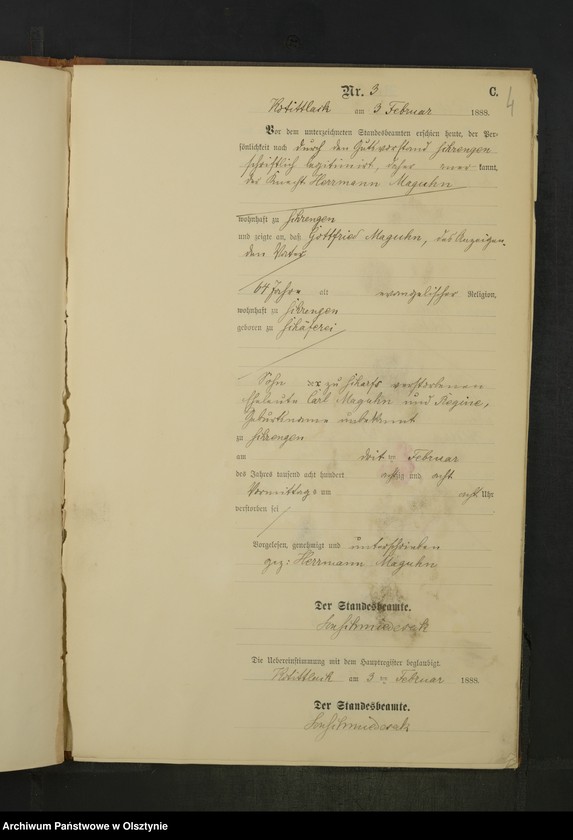 Nr. 3 C.
4
am 3 Februar 1888.
Vor dem unterzeichneten Standesbeamten erschien heute, der Per-
sönlichkeit nach durch den Gutsvorstand
schriftlich legitimirt, daher aner kannt,
der Knecht Herrmann Maguhn
wohnhaft zu
und zeigte an, daß Gottfried Maguhn, des Anzeigen-
den Vater
64 Jahre alt evangelischer Religion,
wohnhaft zu
geboren zu Schäferei
Sohn der zu verstorbenen
Eheleute Carl Maguhn und Regine,
Geburtsname unbekannt
zu
am drit ten Februar
des Jahres tausend acht hundert achtzig und acht
Vormittags um acht Uhr
verstorben sei
Vorgelesen, genehmigt und unterschrieben
gez: Herrmann Maguhn
Der Standesbeamte.
Die Uebereinstimmung mit dem Hauptregister beglaubigt.
am 3 ten Februar 1888.
Der Standesbeamte.
Archiwum Państwowe w Olsztynie